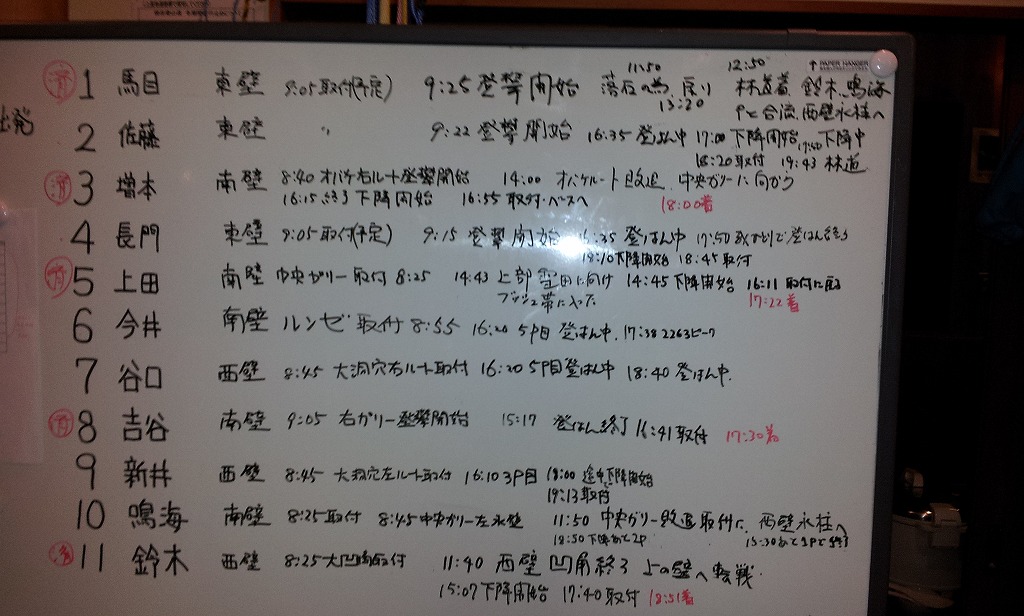 PAPER HANGER
出発
済 1 馬目 東壁 9:05取付(予定) 9:25 登攀開始 落石の為 戻り 11:50 13:20 12:50 林道着 鈴木、鳴海
Pと合流、西壁氷柱へ
2 佐藤 東壁 〃 9:22 登攀開始 16:35 登はん中 17:00 下降開始 17:40 下降中
18:20 取付 19:43 林道
済 3 増本 南壁 8:40 オバケ右ルート登攀開始 14:00 オバケルート敗退、中央ガリーに向かう
16:15 終了 下降開始 16:55 取付・ベースへ 18:00着
4 長門 東壁 9:05 取付(予定) 9:15 登攀開始 16:35 登はん中 17:50 登はん終了
18:10 下降開始 18:45 取付
済 5 上田 南壁 中央ガリー取付 8:25 14:43 上部雪田に向け 14:45 下降開始 16:11 取付に戻る
ブッシュ帯に入った 17:22着
6 今井 南壁 ルンゼ取付 8:55 16:20 5P目 登はん中、17:38 2263ピーク
7 谷口 西壁 8:45 大洞穴右ルート取付 16:20 5P目登はん中 18:40 登はん中.
済 8 吉谷 南壁 9:05 右ガリー登攀開始 15:17 登はん終了 16:41 取付 17:30着
9 新井 西壁 8:45 大洞穴左ルート取付 16:10 3P目 18:00 途中下降開始
19:13 取付
10 鳴海 南壁 8:25 取付 8:45 中央ガリー左氷壁 11:50 中央ガリー敗退 取付に、西壁氷柱へ
18:50 下降あと2P 15:30 1Pで終了
済 11 鈴木 西壁 8:25 大凹角取付 11:40 西壁 凹角終了 上の壁へ転戦.
15:07 下降開始 17:40 取付 18:51着